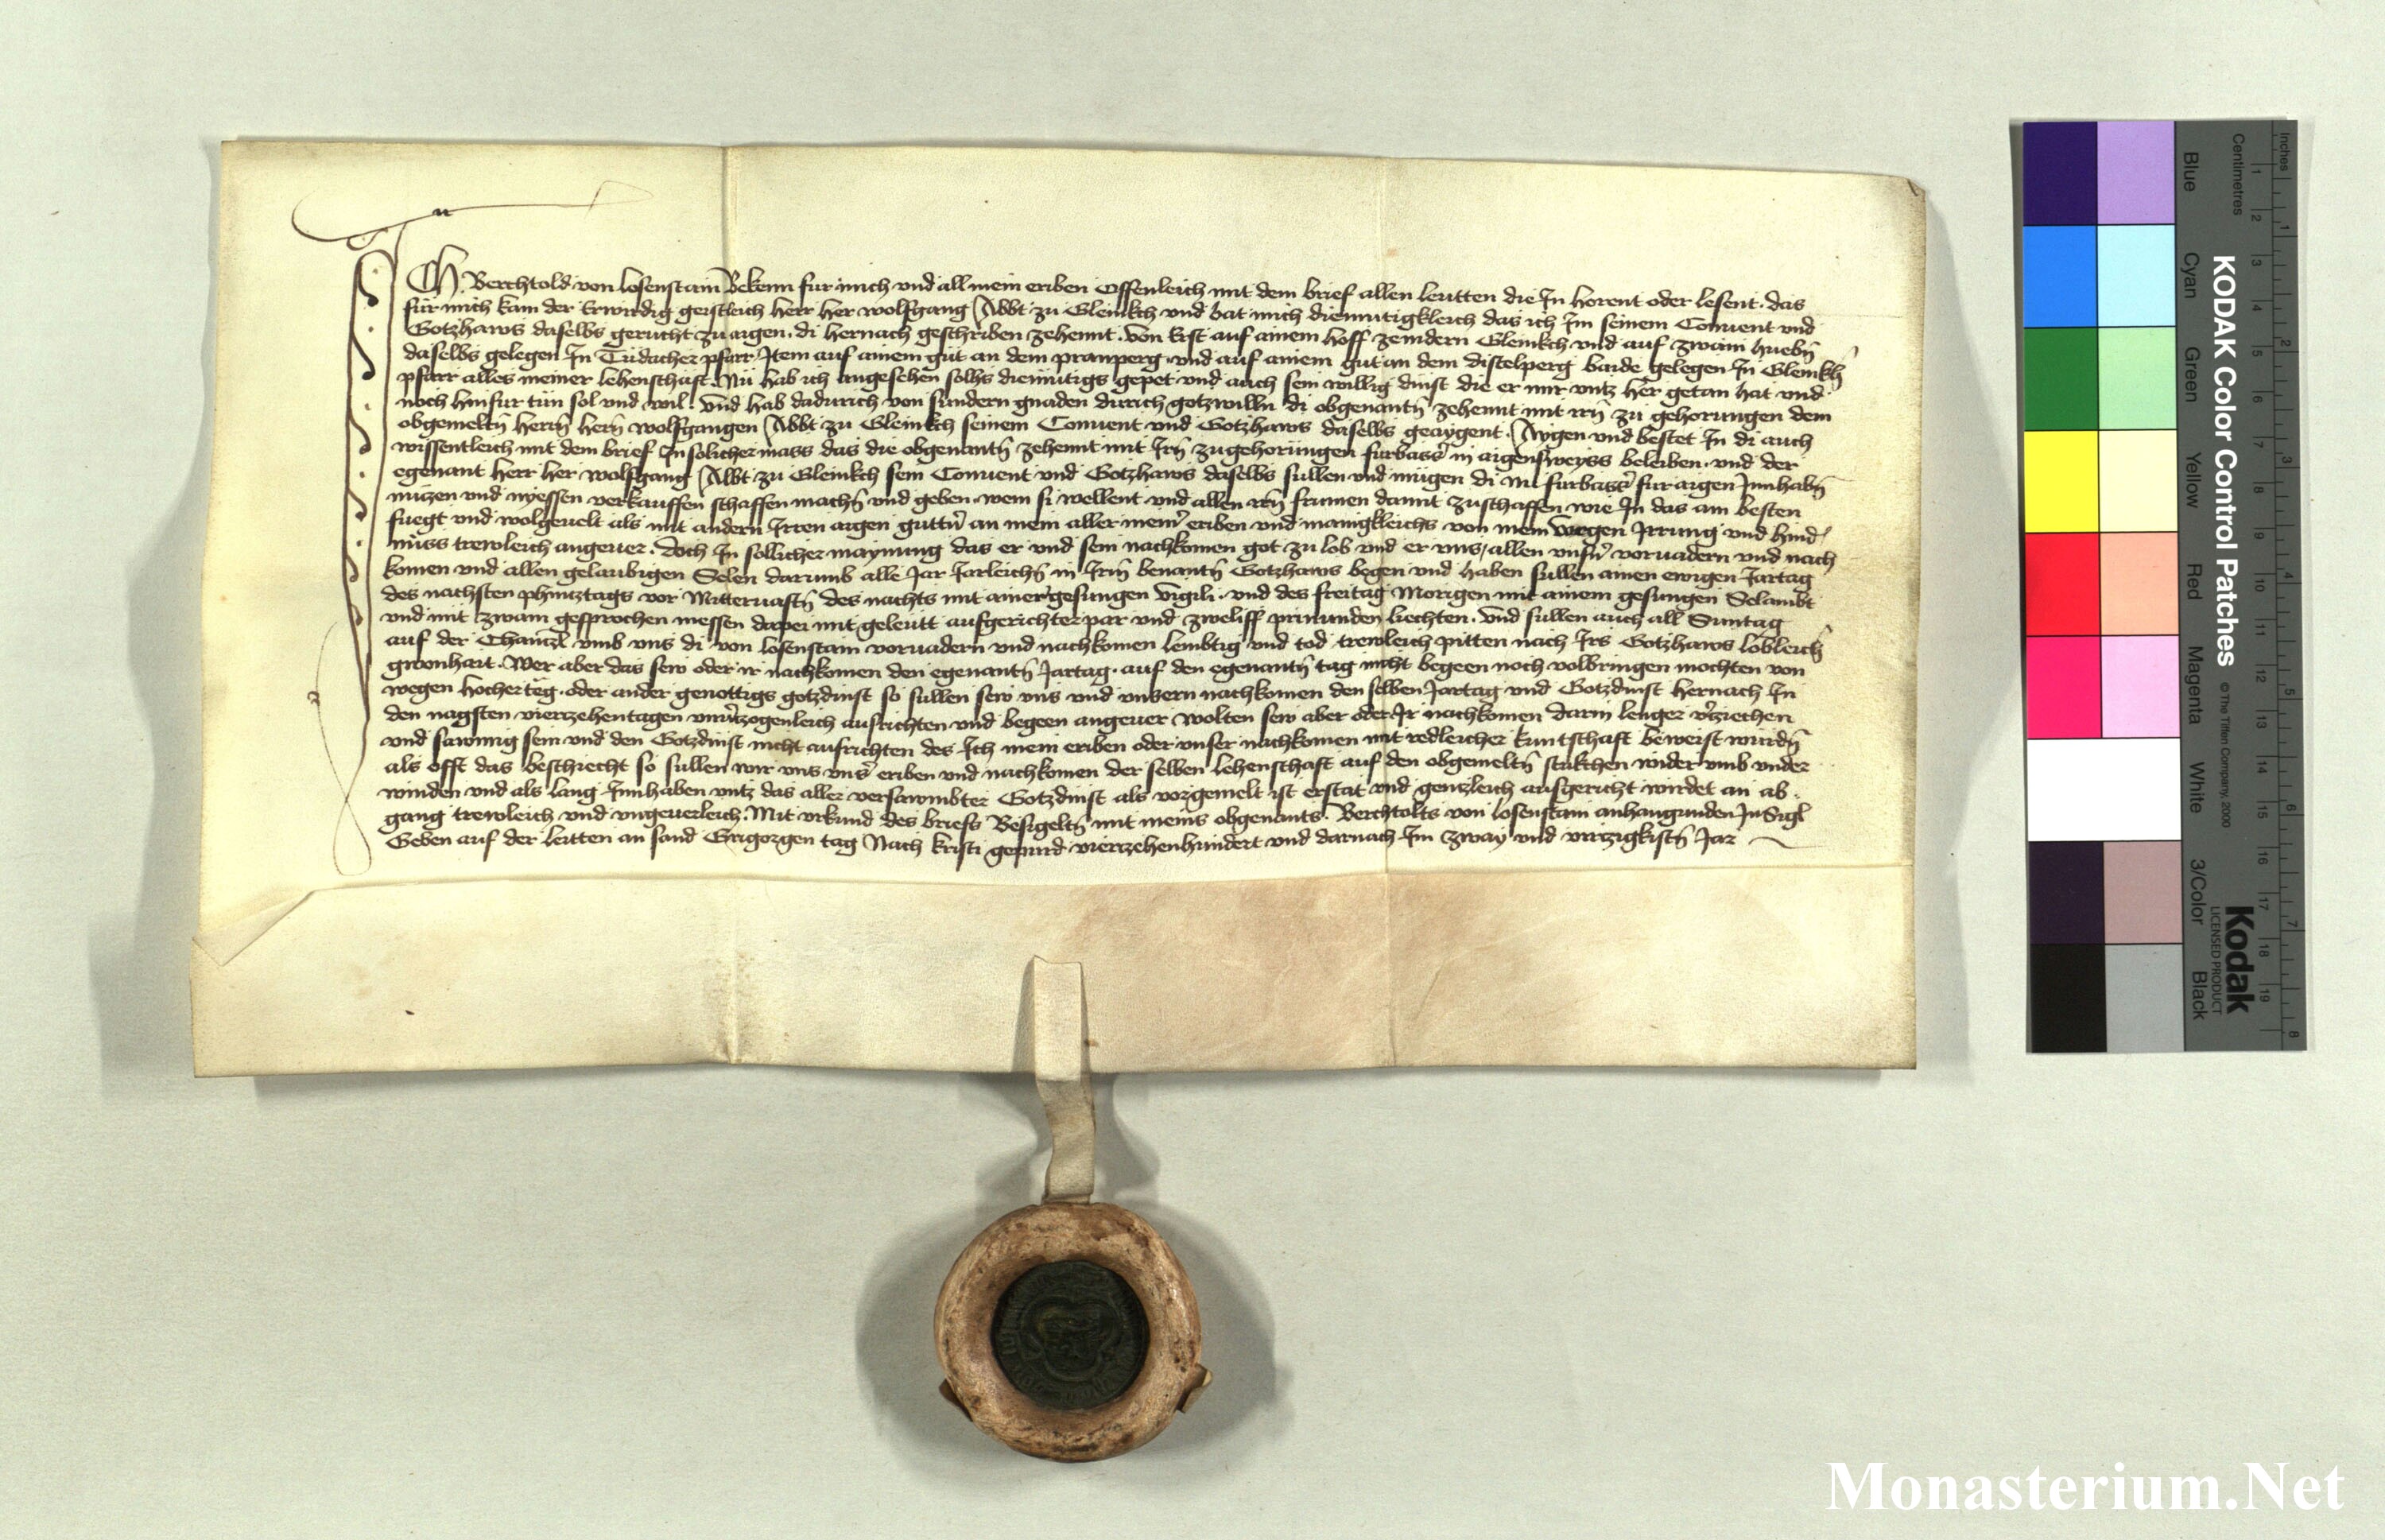 Ich Berchtold von Losenstain Bekenn fur mich vnd all mein eriben Offenleich mit dem brief allen leutten die In horent oder lesent · das
fur mich kam der Erwirdig geistleich herr her wolfgang Abbt zu Gleinkch vnd bat mich diemutigkleich das ich Im seinem Conuent vnd
Gotzhaws daselbs gerucht zu aigen · di hernach geschriben zehennt · von Erst auf ainem hoff ze indern Gleinkch vnd auf zwain huebn̄
daselbs gelegen In pfarr Item auf ainem gut an dem pranperg vnd auf ainem gut an dem distelperg baide gelegen In Gleinkh̄
pfarr alles meiner lehenschaft · Nu hab ich angesehen solhs diemutigs gepet vnd auch sein willig dinst die er mir vntz her getan hat vnd
noch hinfur tun sol vnd wil · vnd hab dadurich von sundern gnaden durich gotzwilln di obgenantn̄ zehennt mit irn̄ zu gehorungen dem
obgemeltn̄ herrn̄ hern̄ wolfgangen Abbt zu Gleinkch seinem Conuent vnd Gotzhaws daselbs geaygent · Aygen vnd bestet In di auch
wissentleich mit dem brief In solicher mass das die obgenantn̄ zehennt mit Irn̄ zugehorungen furbass̄ in aigensweyss beleiben · vnd der
egenant herr her wolfgang Abbt zu Gleinkch sein Conuent vnd Gotzhaws daselbs sullen vnd mugen di nu furbass̄ fur aigen Innhabn̄
nutzen vnd nyessen verkauffen schaffen machn̄ vnd geben wem si wellent vnd allen irn̄ frumen damit zuschaffen wie In das am besten
fuegt vnd wolgeuelt als mit andern Irren aigen guttn̄ an mein aller mein̄ eriben vnd manigkleichs von mein wegen Irrung vnd hind/
nuss trewleich angeuer · doch In sollicher maynung das er vnd sein nachkomen got zu lob vnd er vnns/ allen vnsn̄ voruadern vnd nach
komen vnd allen gelaubigen Selen darumb alle Jar Jarleichn̄ in Irm̄ benantn̄ Gotzhaws begen vnd haben sullen ainen ewigen Jartag
des nachsten phintztags vor Mitteruastn̄ des nachts mit ainer gesungen vigili · vnd des freitag Morigen mit ainem gesungen Selambt
vnd mit zwain gesprochen messen dapei mit geleutt aufgerichter par vnd zweliff prinunden liechten · vnd sullen auch all Suntag
auf der Chantzl vmb vns di von Losenstain voruadern vnd nachkomen lembtig vnd tod trewleich pitten nach Irs Gotzhaws lobleich̄
gwonhait · Wer aber das sew oder ir nachkomen den egenantn̄ Jartag · auf den egenantn̄ tag nicht begeen noch volbringen mochten von
wegen hocher teg · oder ander genottigs gotzdinst so sullen sew vns vnd vnsern nachkomen den selben Jartag vnd Gotzdinst hernach In
den nagsten vierzehentagen vnu̅tzogenleich ausrichten vnd begeen angeuer wolten sew aber oder Ir nachkomen darin lenger v̄tziechen
vnd sawmig sein vnd den Gotzdinst nicht ausrichten des Ich mein eriben oder vnser nachkomen mit redleicher kuntschaft beweist wurdn̄
als offt das beschiecht so sullen wir vns vns̄ eriben vnd nachkomen der selben lehenschaft auf den obgemeltn̄ stukchen wider vmb vnder
winden vnd als lang Innhaben vntz das aller versawmbter Gotzdinst als vorgemelt ist erstat vnd gentzleich ausgericht wirdet an ab ·
gang trewleich vnd vngeuerleich · Mit vrkund des briefs Besigeltn̄ mit meins obgenants · Berchtolts von Losenstain anhangunden InSigl
Geben auf der leitten an sand Grigorgen tag Nach kristi gepurd vierzehenhundert vnd darnach Im zway vnd virtzigkistn̄ Jar
KODAK Color Control Patches © The Tiffen Company, 2000
Kodak
LICENSED PRODUCT
Inches
Centimetres
Blue Cyan Green Yellow Red Magenta White 3/Color Black
1 2 3 4 5 6 7 8 9 10 11 12 13 14 15 16 17 18 19
1 2 3 4 5 6 7 8
Monasterium.Net